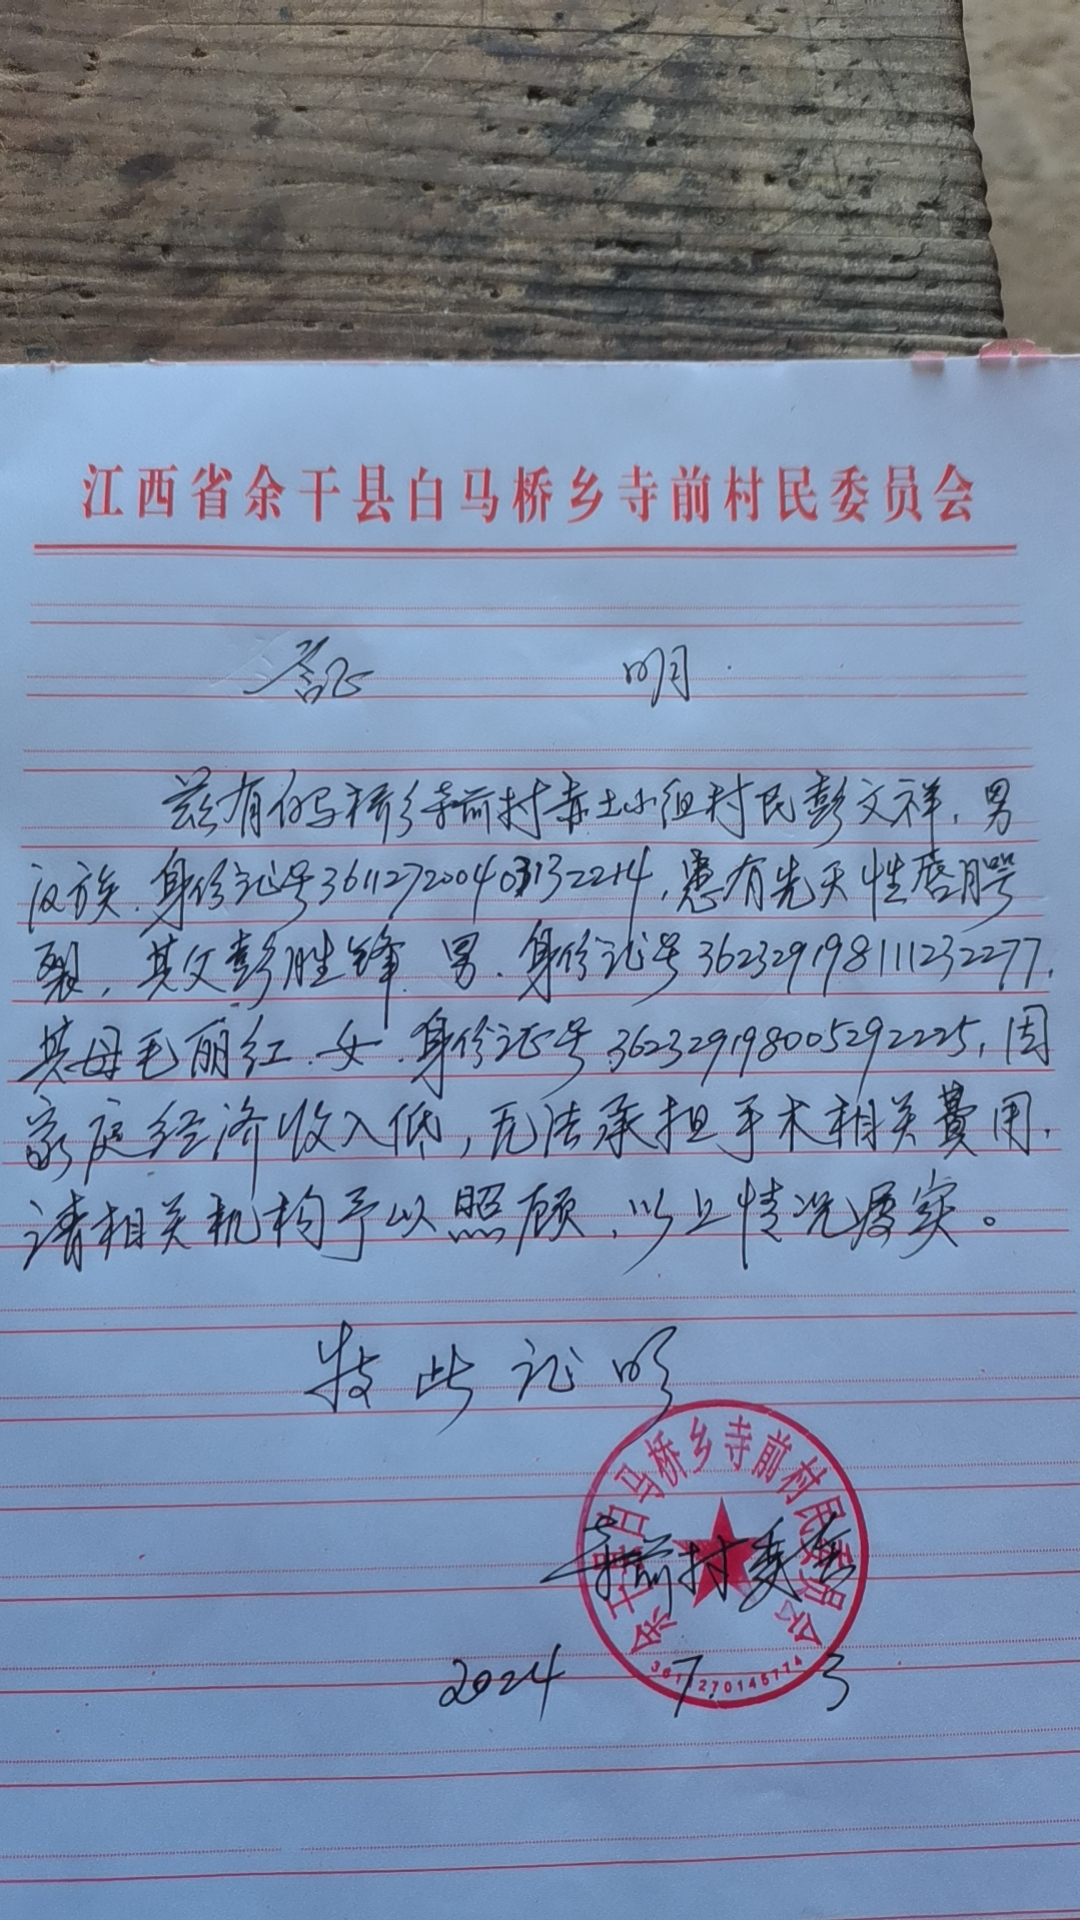 江西省余干县白马桥乡寺前村民委员会
证 明
兹有白马桥乡寺前村赤土小组村民彭文祥,男
汉族.身份证号361127200403132214,患有先天性唇腭
裂,其父彭胜锋.男.身份证号362329198111232277,
其母毛丽红.女.身份证号362329198005292225,因
家庭经济收入低,无法承担手术相关费用.
请相关机构予以照顾,以上情况属实。
特此证明
余干县白马桥乡寺前村民委员会
寺前村委会
2024 7. 3